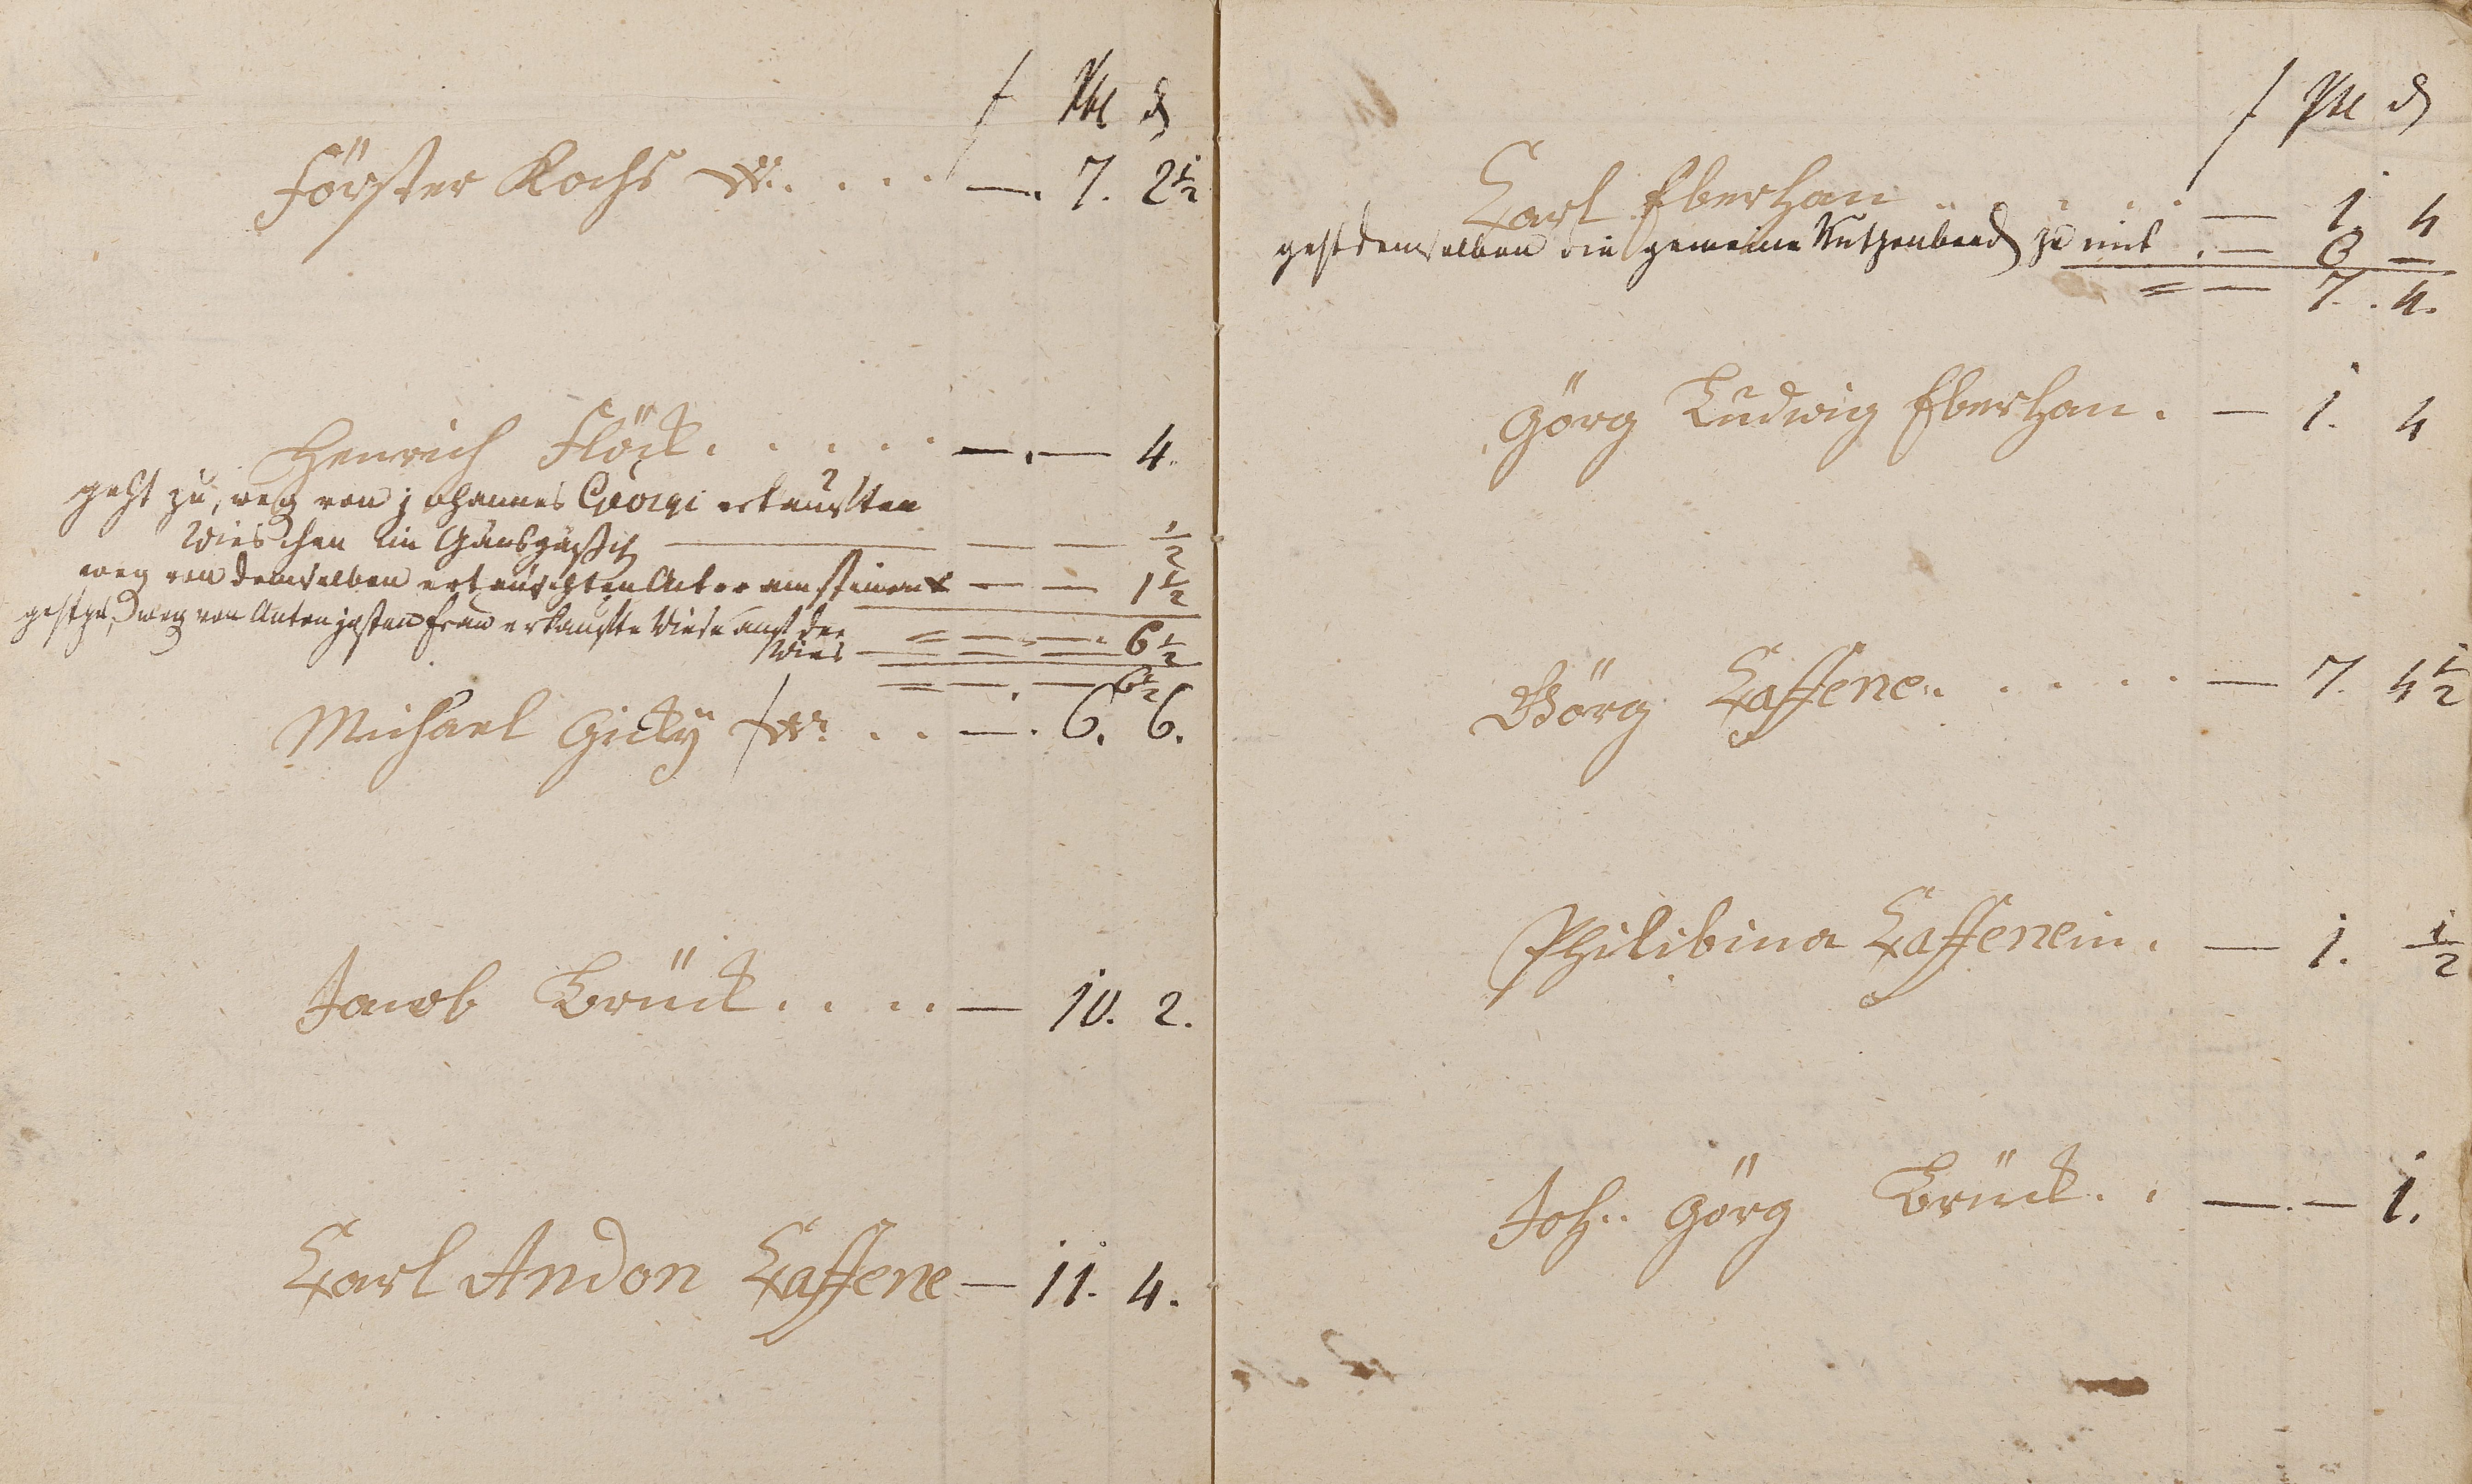 f Rtl ₰
Förster Kochs — 7. 2½
Henrich Flöck — . — 4.
geht zu, weg von johannes Georgi erkaufften
Wieschen im Gänsgäßch — — ½
weg von demselben erkaufften Acker am — — 1½
geht zu, weg von Anton Frau erkauffte Wiese auf der
Wies
= — — 6½
= — . — 6½
Michael Gicky — . 6. 6.
Jacob Brück — 10. 2.
Carl Andon Caffene — 11. 4.
f Rtl ₰
Carl Eberhan — 1. 4
geht demselben die gemeine zu mit — 6 —
= — 7. 4.
Görg Ludwig Eberhan. — 1. 4
Görg Caffene — 7. 4½
Philibina Caffenein. — 1. ½
Joh: Görg Brück — . — 1.